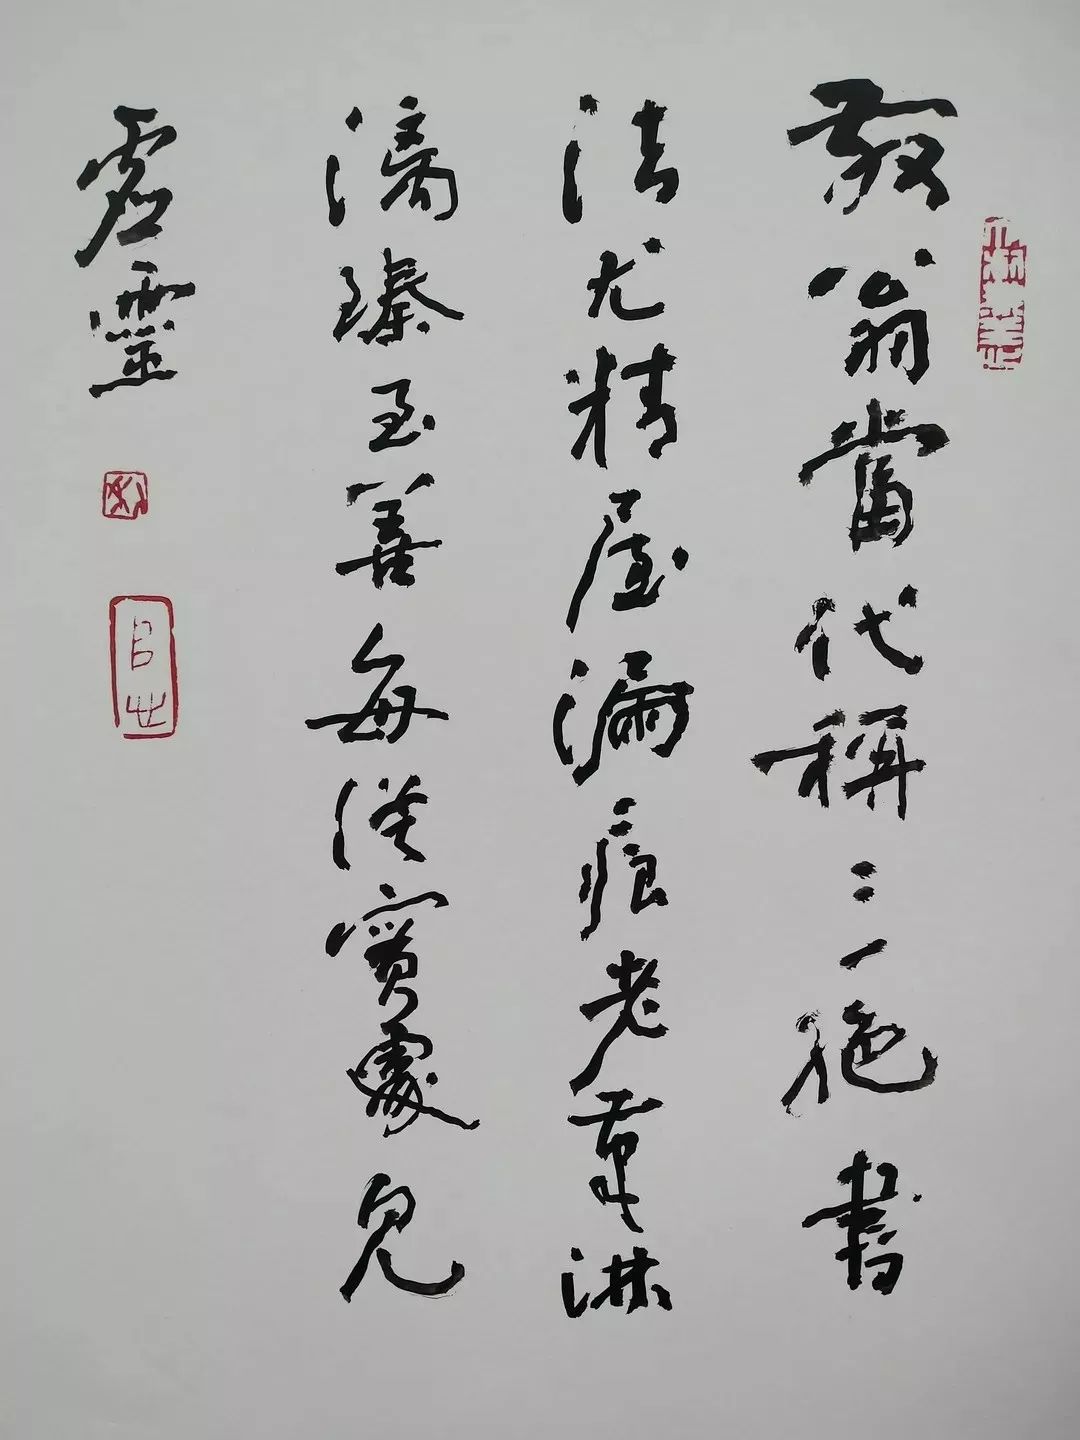 散翁當代稱三絶書
法尤精屋漏痕老筆淋
漓臻至善每從實處見
虚靈